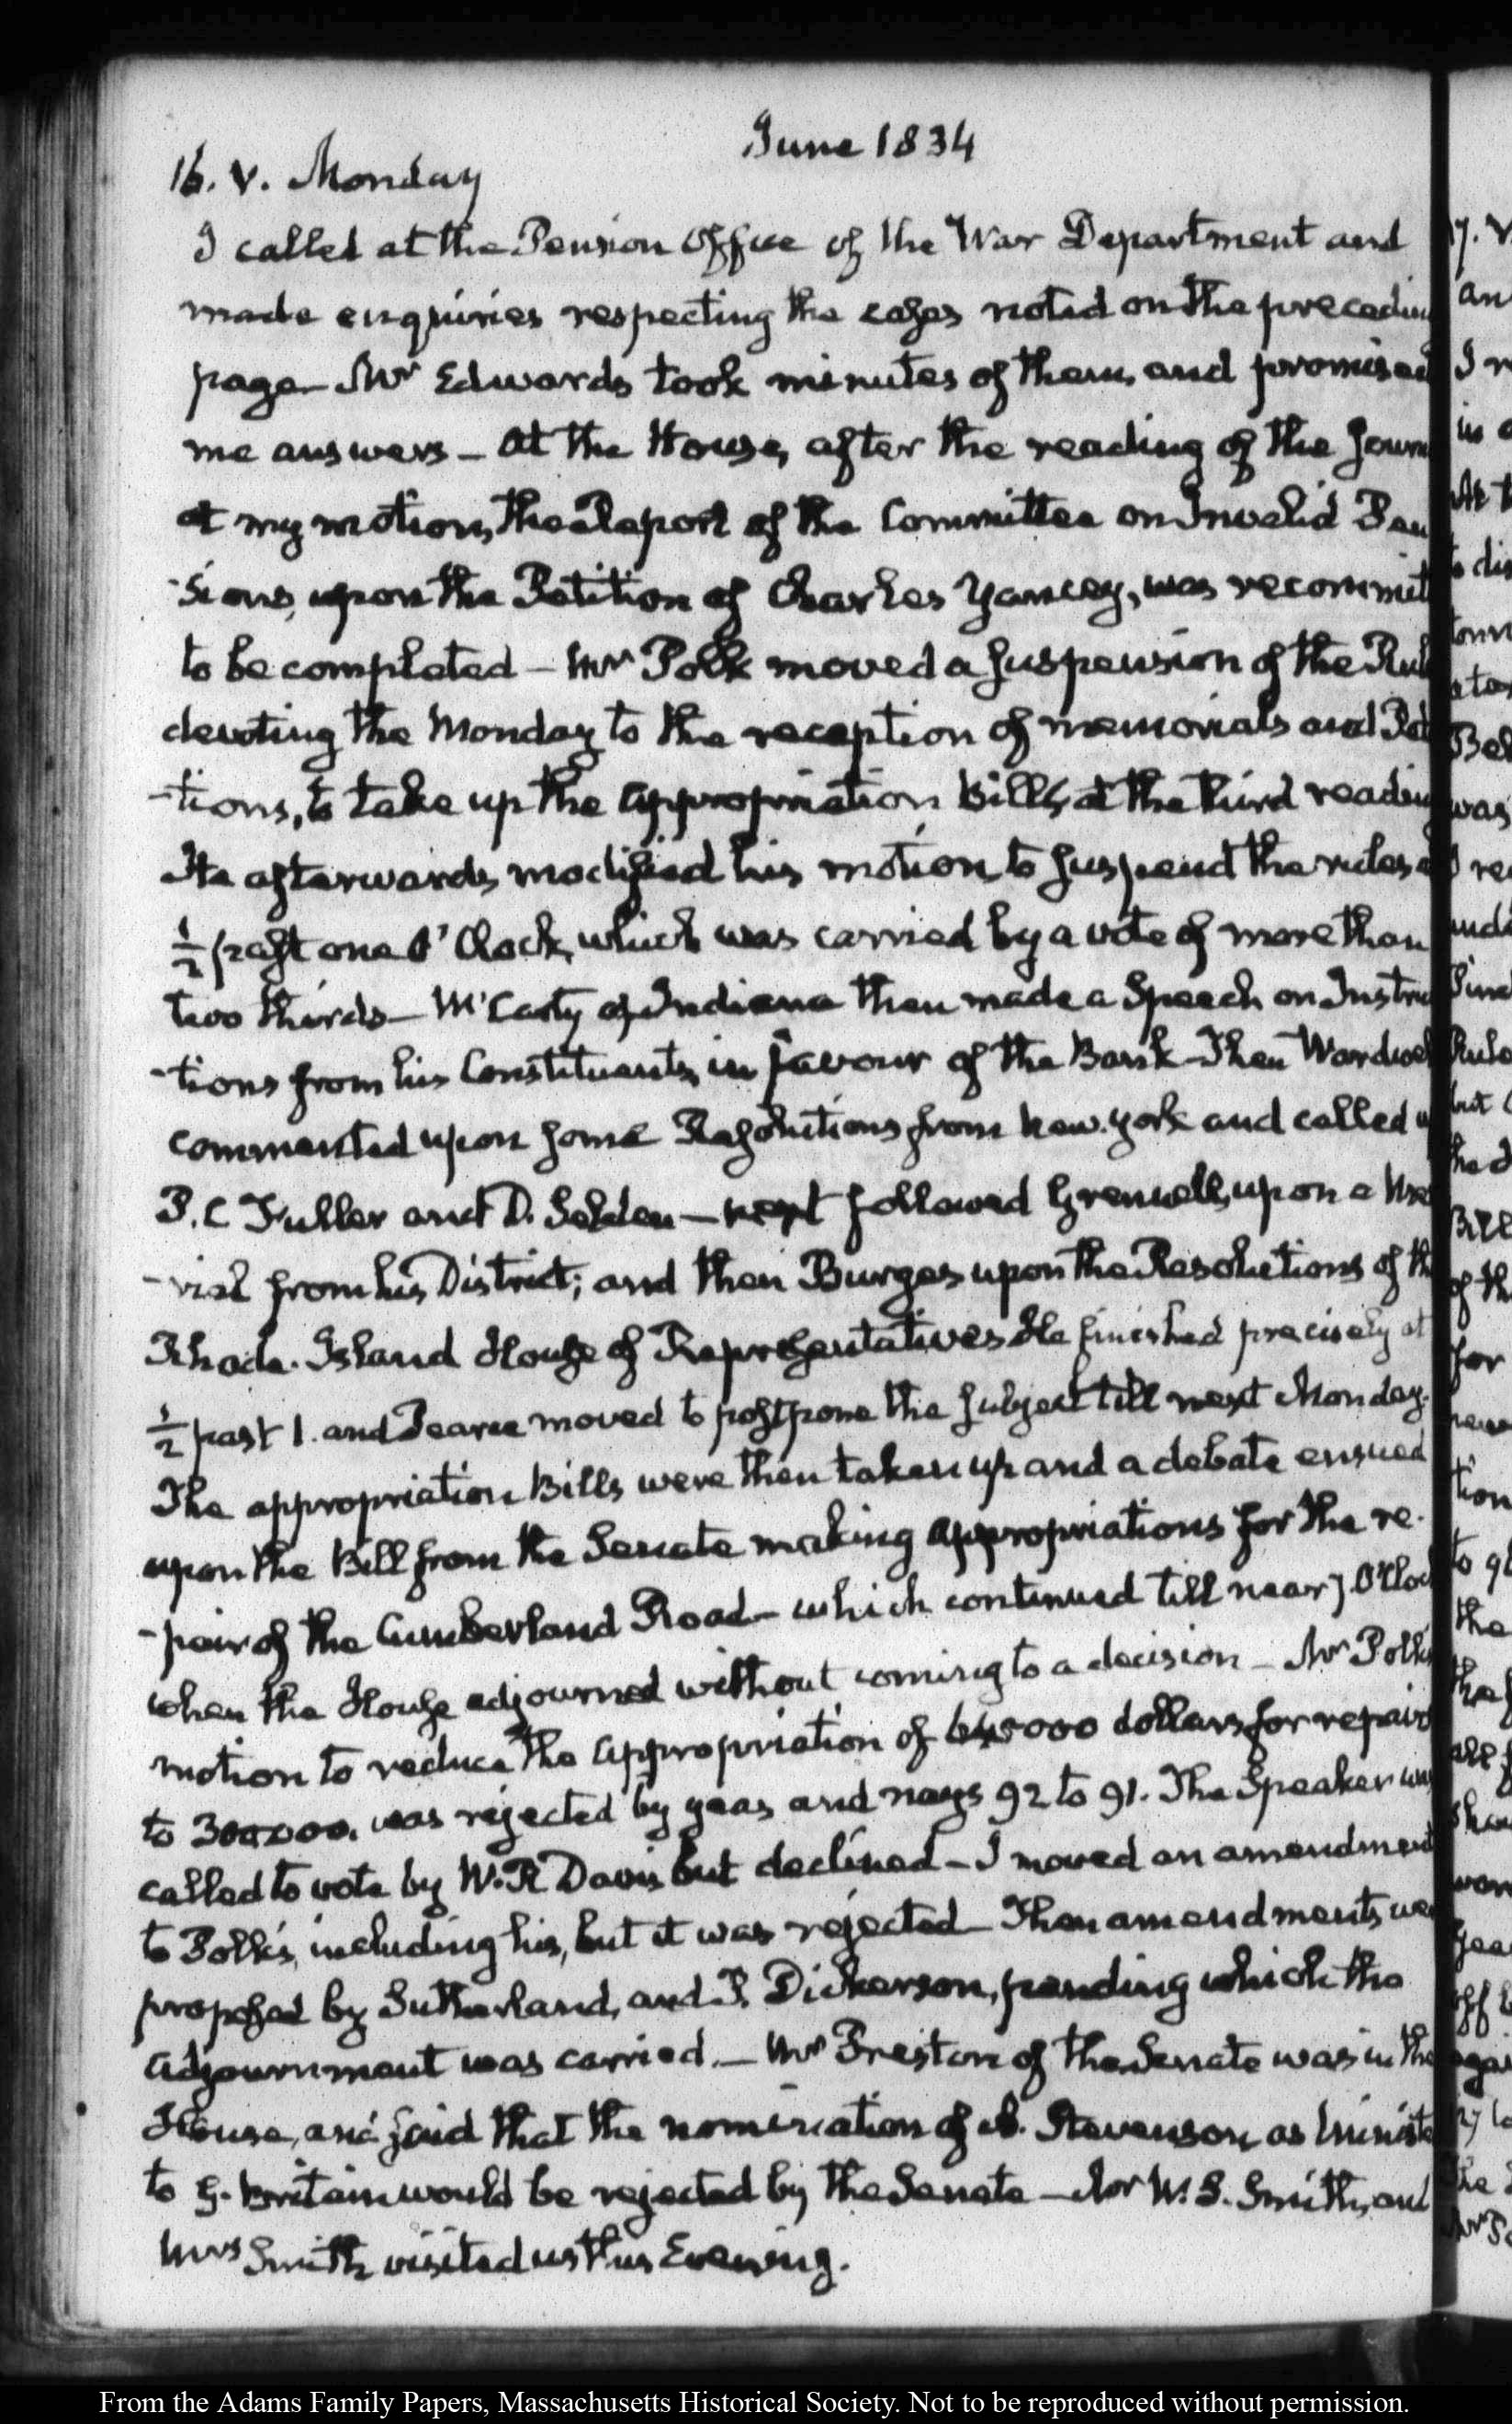 June 1834
16. V. Monday
I called at the Pension Office of the War Department and
made enquiries respecting the cases noted on the preceding
page— Mr Edwards took minutes of them, and promised
me answers— At the House, after the reading of the Journ
at my motion, the Report of the Committee on Invalid Pen
-sions, upon the Petition of Charles Yancey, was recommit
to be completed— Mr Polk moved a suspension of the Rul
devoting the Monday to the reception of memorials and Pet
-tions, to take up the appropriation Bills, at the third reading
He afterwards modified his motion, to suspend the rules a
½ past one O'Clock, which was carried by a vote of more than
two thirds— McCarty of Indiana then made a Speech on Instru
-tions from his Constituents, in favour of the Bank— Then Wardwel
commented upon some Resolutions from New-York and called u
P. C Fuller and D. Selden— next followed Grennell, upon a Me
-rial from his District; and then Burges upon the Resolutions of th
Rhode-Island House of Representatives He finished precisely at
½ past 1. and Pearce moved to postpone the subject till next Monday.
The appropriation Bills were then taken up and a debate ensued
upon the Bill from the Senate making appropriations for the re-
-pair of the Cumberland Road— which continued till near 7. O'Cloc
when the House adjourned without coming to a decision— Mr Polk's
motion to reduce the appropriation of 645000 dollars for repairs
to 300000. was rejected by yeas and nays 92 to 91. The Speaker was
called to vote by W. R Davis but declined— I moved an amendment
to Polk's, including his, but it was rejected— Then amendments we
proposed by Sutherland, and P. Dickerson, pending which the
adjournment was carried.— Mr Preston of the Senate was in the
House, and said that the nomination of A. Stevenson as Ministe
to G. Britain would be rejected by the Senate— Mr W. S. Smith, and
Mrs Smith visited us this Evening.
From the Adams Family Papers, Massachusetts Historical Society. Not to be reproduced without permission.